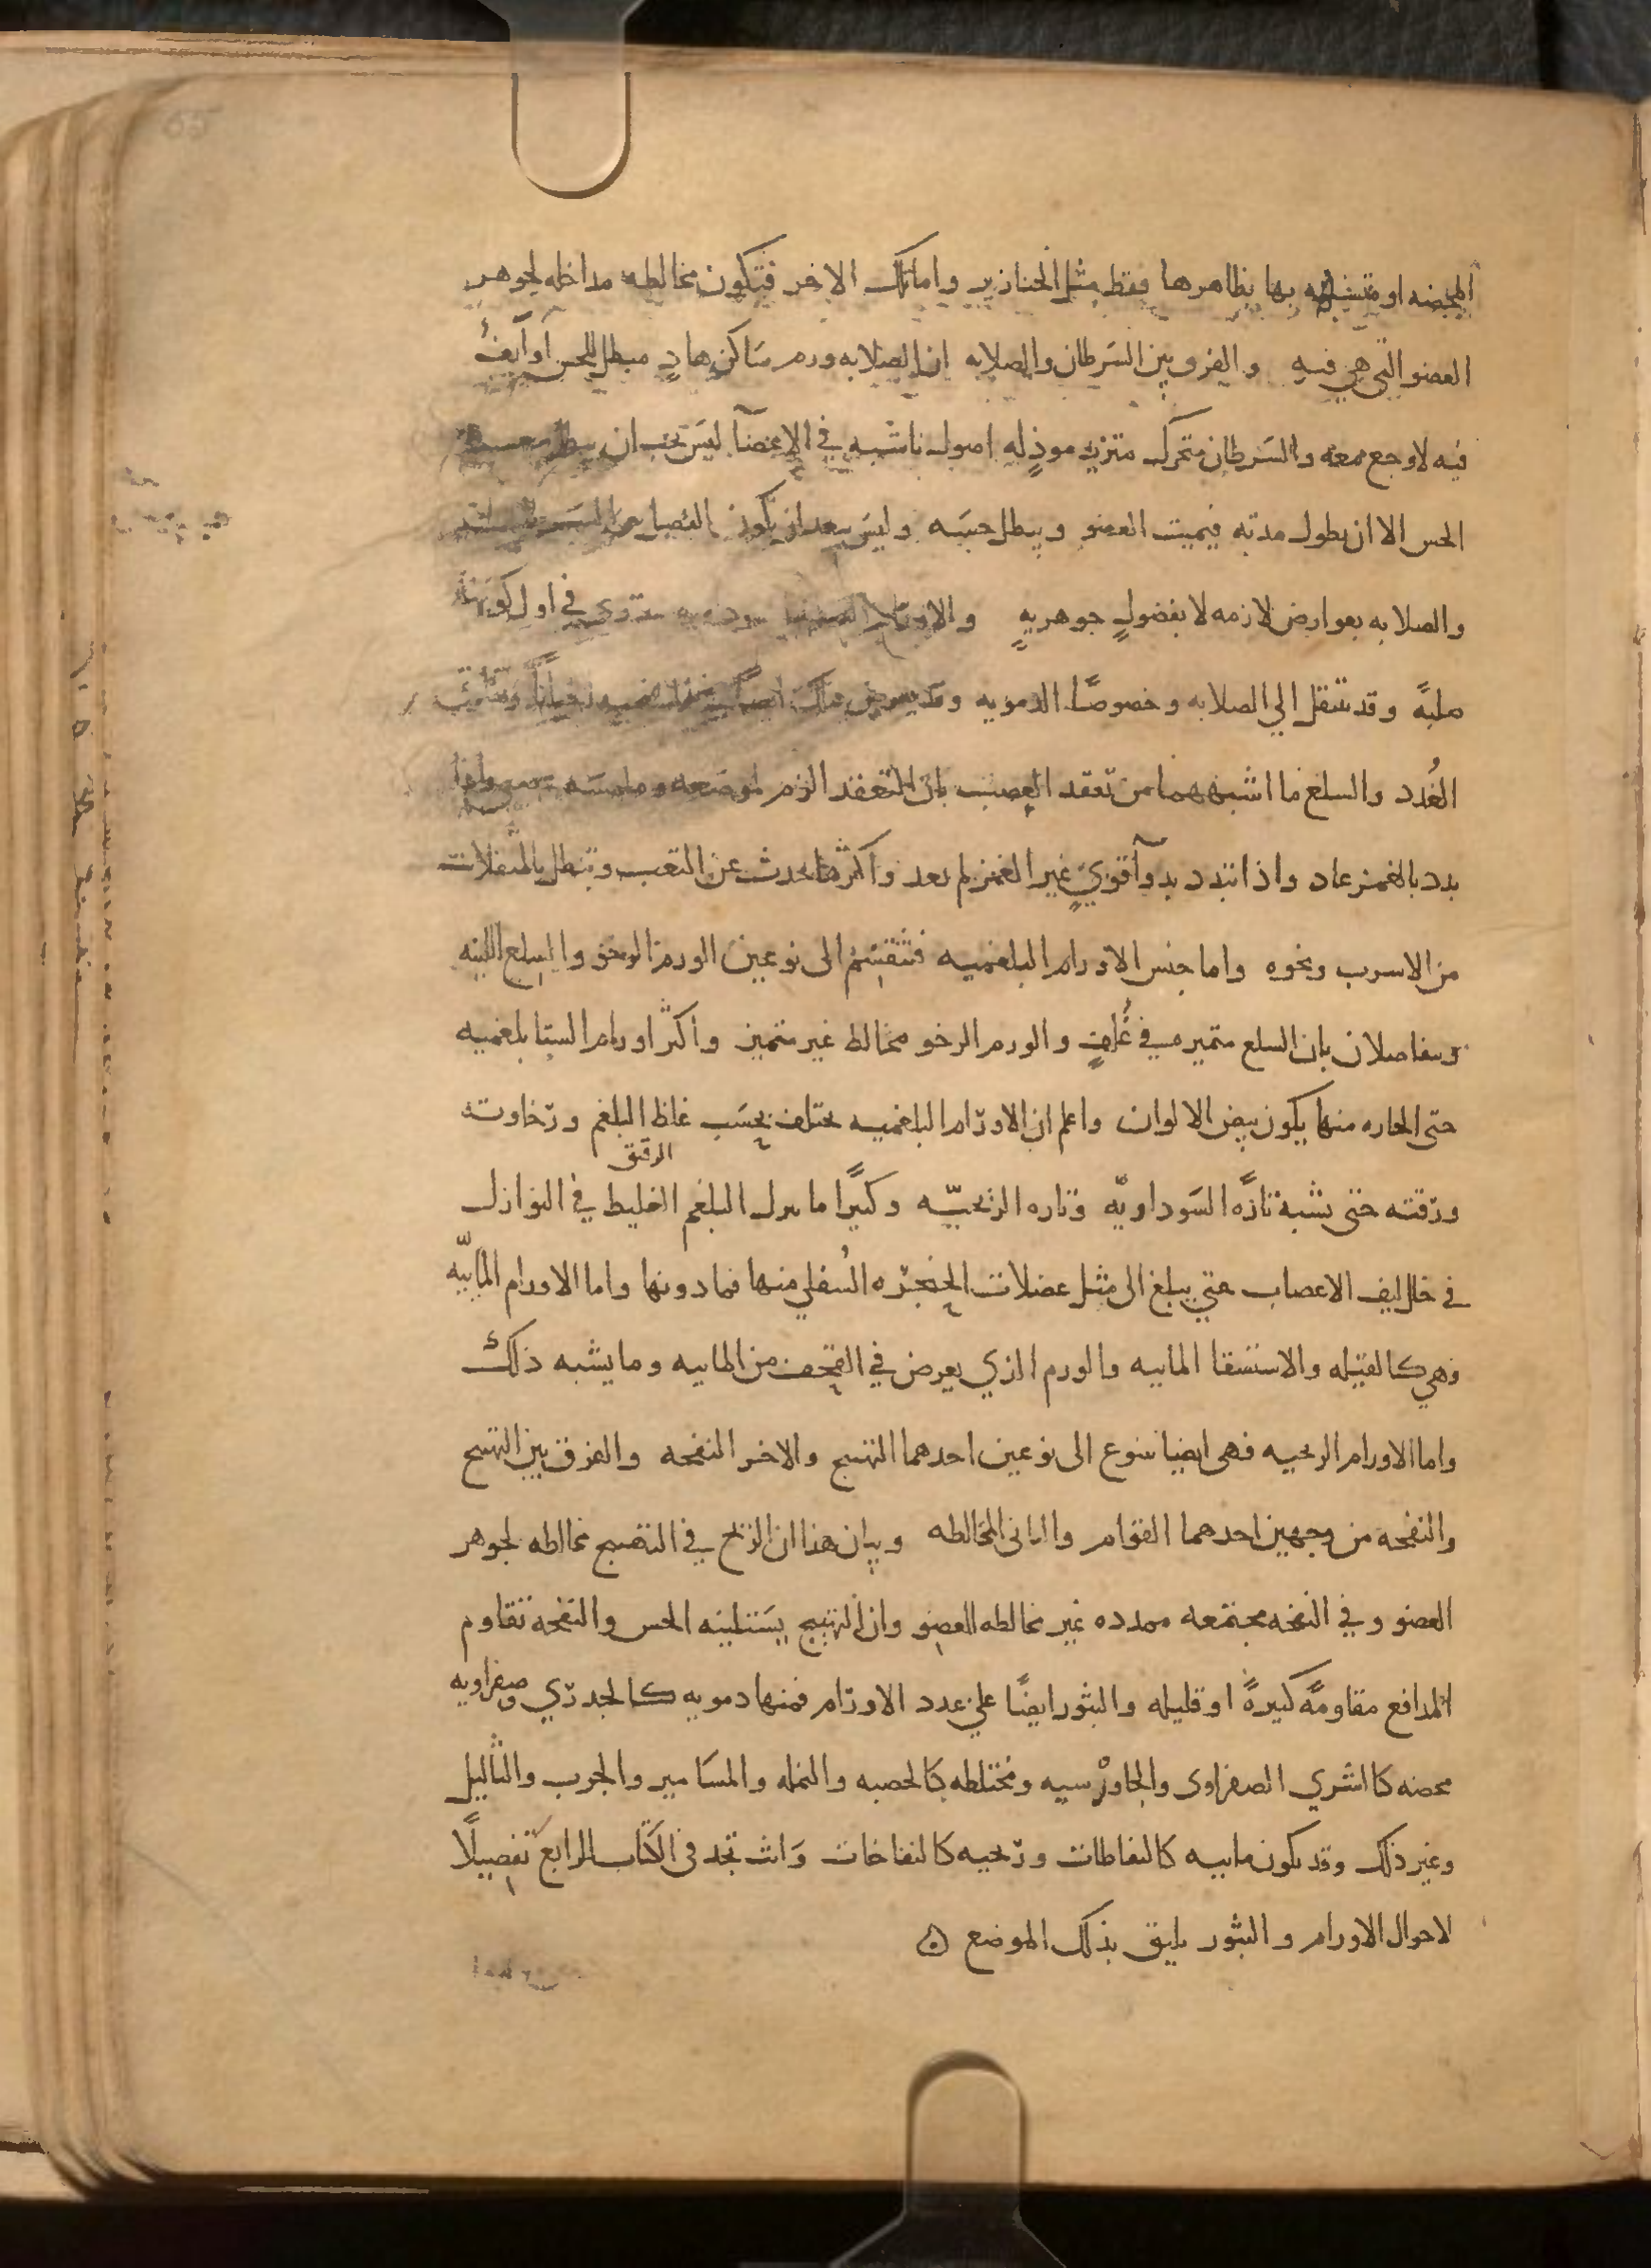 المحضه او متشبثه بها بظاهرها فقط مثل الخنازير واما تلك الاخر فتكون مخالطه مداخله لجوهر
العضو التي هي فيه والفرق بين السَرطان والصلابه ان الصلابه ورم سَاكن هادٍ مبطل للحس او آيفُ
فيه لا وجع معه والسَرطان متحرك متزيد موذٍ له اصول ناشبه في الاعضآ ليسَ يجب ان يبطل معه
الحس الا ان يطول مدته فيميت العضو ويبطل حسَه وليسَ يبعد ان يكون الفصل بين السَرطان
والصلابه بعوارض لازمه لا بفضولٍ جوهريهٍ والاورام الصلبه السوداويه تبتدي في اول كونها
صلبهً وقد تنتقل الي الصلابه وخصوصًا الدمويه وقد يعرض ذلك ايضًا في البلغميه احيانًا وتفارق
الغُدد والسلع ما اشبههما من تعقد العصب بان التعقد الزم لموضعه وملمسَه عصبي واذا
بدد بالغمز عاد واذا تبدد بدوآ قويٍ غير الغمز لم يعد واكثرها يحدث عن التعب وتبطل بالمثقلات
من الاسرب ونحوه واما جنس الاورام البلغميه فتنقسم الى نوعين الورم الرخو والسلع اللينه
ويتفاصلان بان السلع متميزه في غُلفٍ والورم الرخو مخالط غير متميز واكثر اورام الشتا بلغميه
حتى الحاره منها يكون بيض الالوان واعلم ان الاورام البلغميه يختلف بحسَب غلظ البلغم ورخاوته
ورقته حتى يشبه تارَّه السَوداويّه وتاره الريحيّه وكثيرًا ما ينزل البلغم الرقيق الغليظ في النوازل
في خلل ليف الاعصاب حتي يبلغ الى مثل عضلات الحنجره السُفلي منها فما دونها واما الاورام المائيّه
فهي كالقيله والاستسقا المائيه والورم الذي يعرض في القحف من المائيه وما يشبه ذلك
واما الاورام الريحيه فهى ايضا تتنوع الى نوعين احدهما التهيج والاخر النفخه والفرق بين التهيج
والنفخه من وجهين احدهما القوام والثانى المخالطه وبيان هذا ان الريح في التهيج مخالطه لجوهر
العضو وفي النفخه مجتمعه ممدده غير مخالطه للعضو وان التهيج يسَتلينه الحس والنفخه تقاوم
المدافع مقاومهً كثيرهً او قليله والبثور ايضًا علي عدد الاورام فمنها دمويه كالجدري وصفراويه
محضه كالشري الصفراوى والجاورسيه ومختلطه كالحصبه والنمله والمسَامير والجرب والثاليل
وغير ذلك وقد تكون مائيه كالنفاطات وريحيه كالنفاخات وَانت تجد في الكتاب الرابع تفصيلًا
لاحوال الاورام والبثور يليق بذلك الموضع